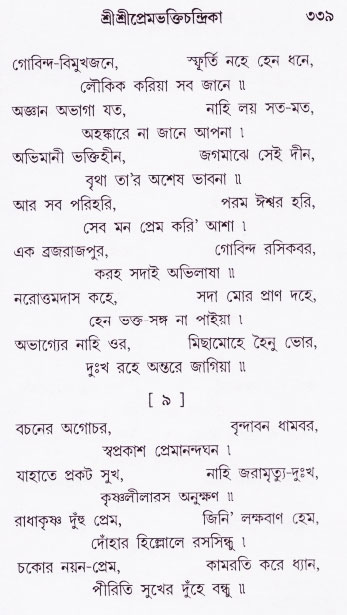 শ্রীশ্রীপ্রেমভক্তিচন্দ্রিকা ৩৩৯
গোবিন্দ-বিমুখজনে, স্ফূর্তি নহে হেন ধনে,
লৌকিক করিয়া সব জানে ॥
অজ্ঞান অভাগা যত, নাহি লয় সত-মত,
অহঙ্কারে না জানে আপনা ।
অভিমানী ভক্তিহীন, জগমাঝে সেই দীন,
বৃথা তা'র অশেষ ভাবনা ॥
আর সব পরিহরি, পরম ঈশ্বর হরি,
সেব মন প্রেম করি' আশা ।
এক ব্রজরাজপুর, গোবিন্দ রসিকবর,
করহ সদাই অভিলাষা ॥
নরোত্তমদাস কহে, সদা মোর প্রাণ দহে,
হেন ভক্ত সঙ্গ না পাইয়া ।
অভাগ্যের নাহি ওর, মিছামোহে হৈনু ভোর,
দুঃখ রহে অন্তরে জাগিয়া ॥
[ ৯ ]
বচনের অগোচর, বৃন্দাবন ধামবর,
স্বপ্রকাশ প্রেমানন্দঘন ।
যাহাতে প্রকট সুখ, নাহি জরামৃত্যু-দুঃখ,
কৃষ্ণলীলারস অনুক্ষণ ॥
রাধাকৃষ্ণ দুঁহু প্রেম, জিনি' লক্ষবাণ হেম,
দোঁহার হিল্লোলে রসসিন্ধু ।
চকোর নয়ন-প্রেম, কামরতি করে ধ্যান,
পীরিতি সুখের দুঁহে বন্ধু ॥